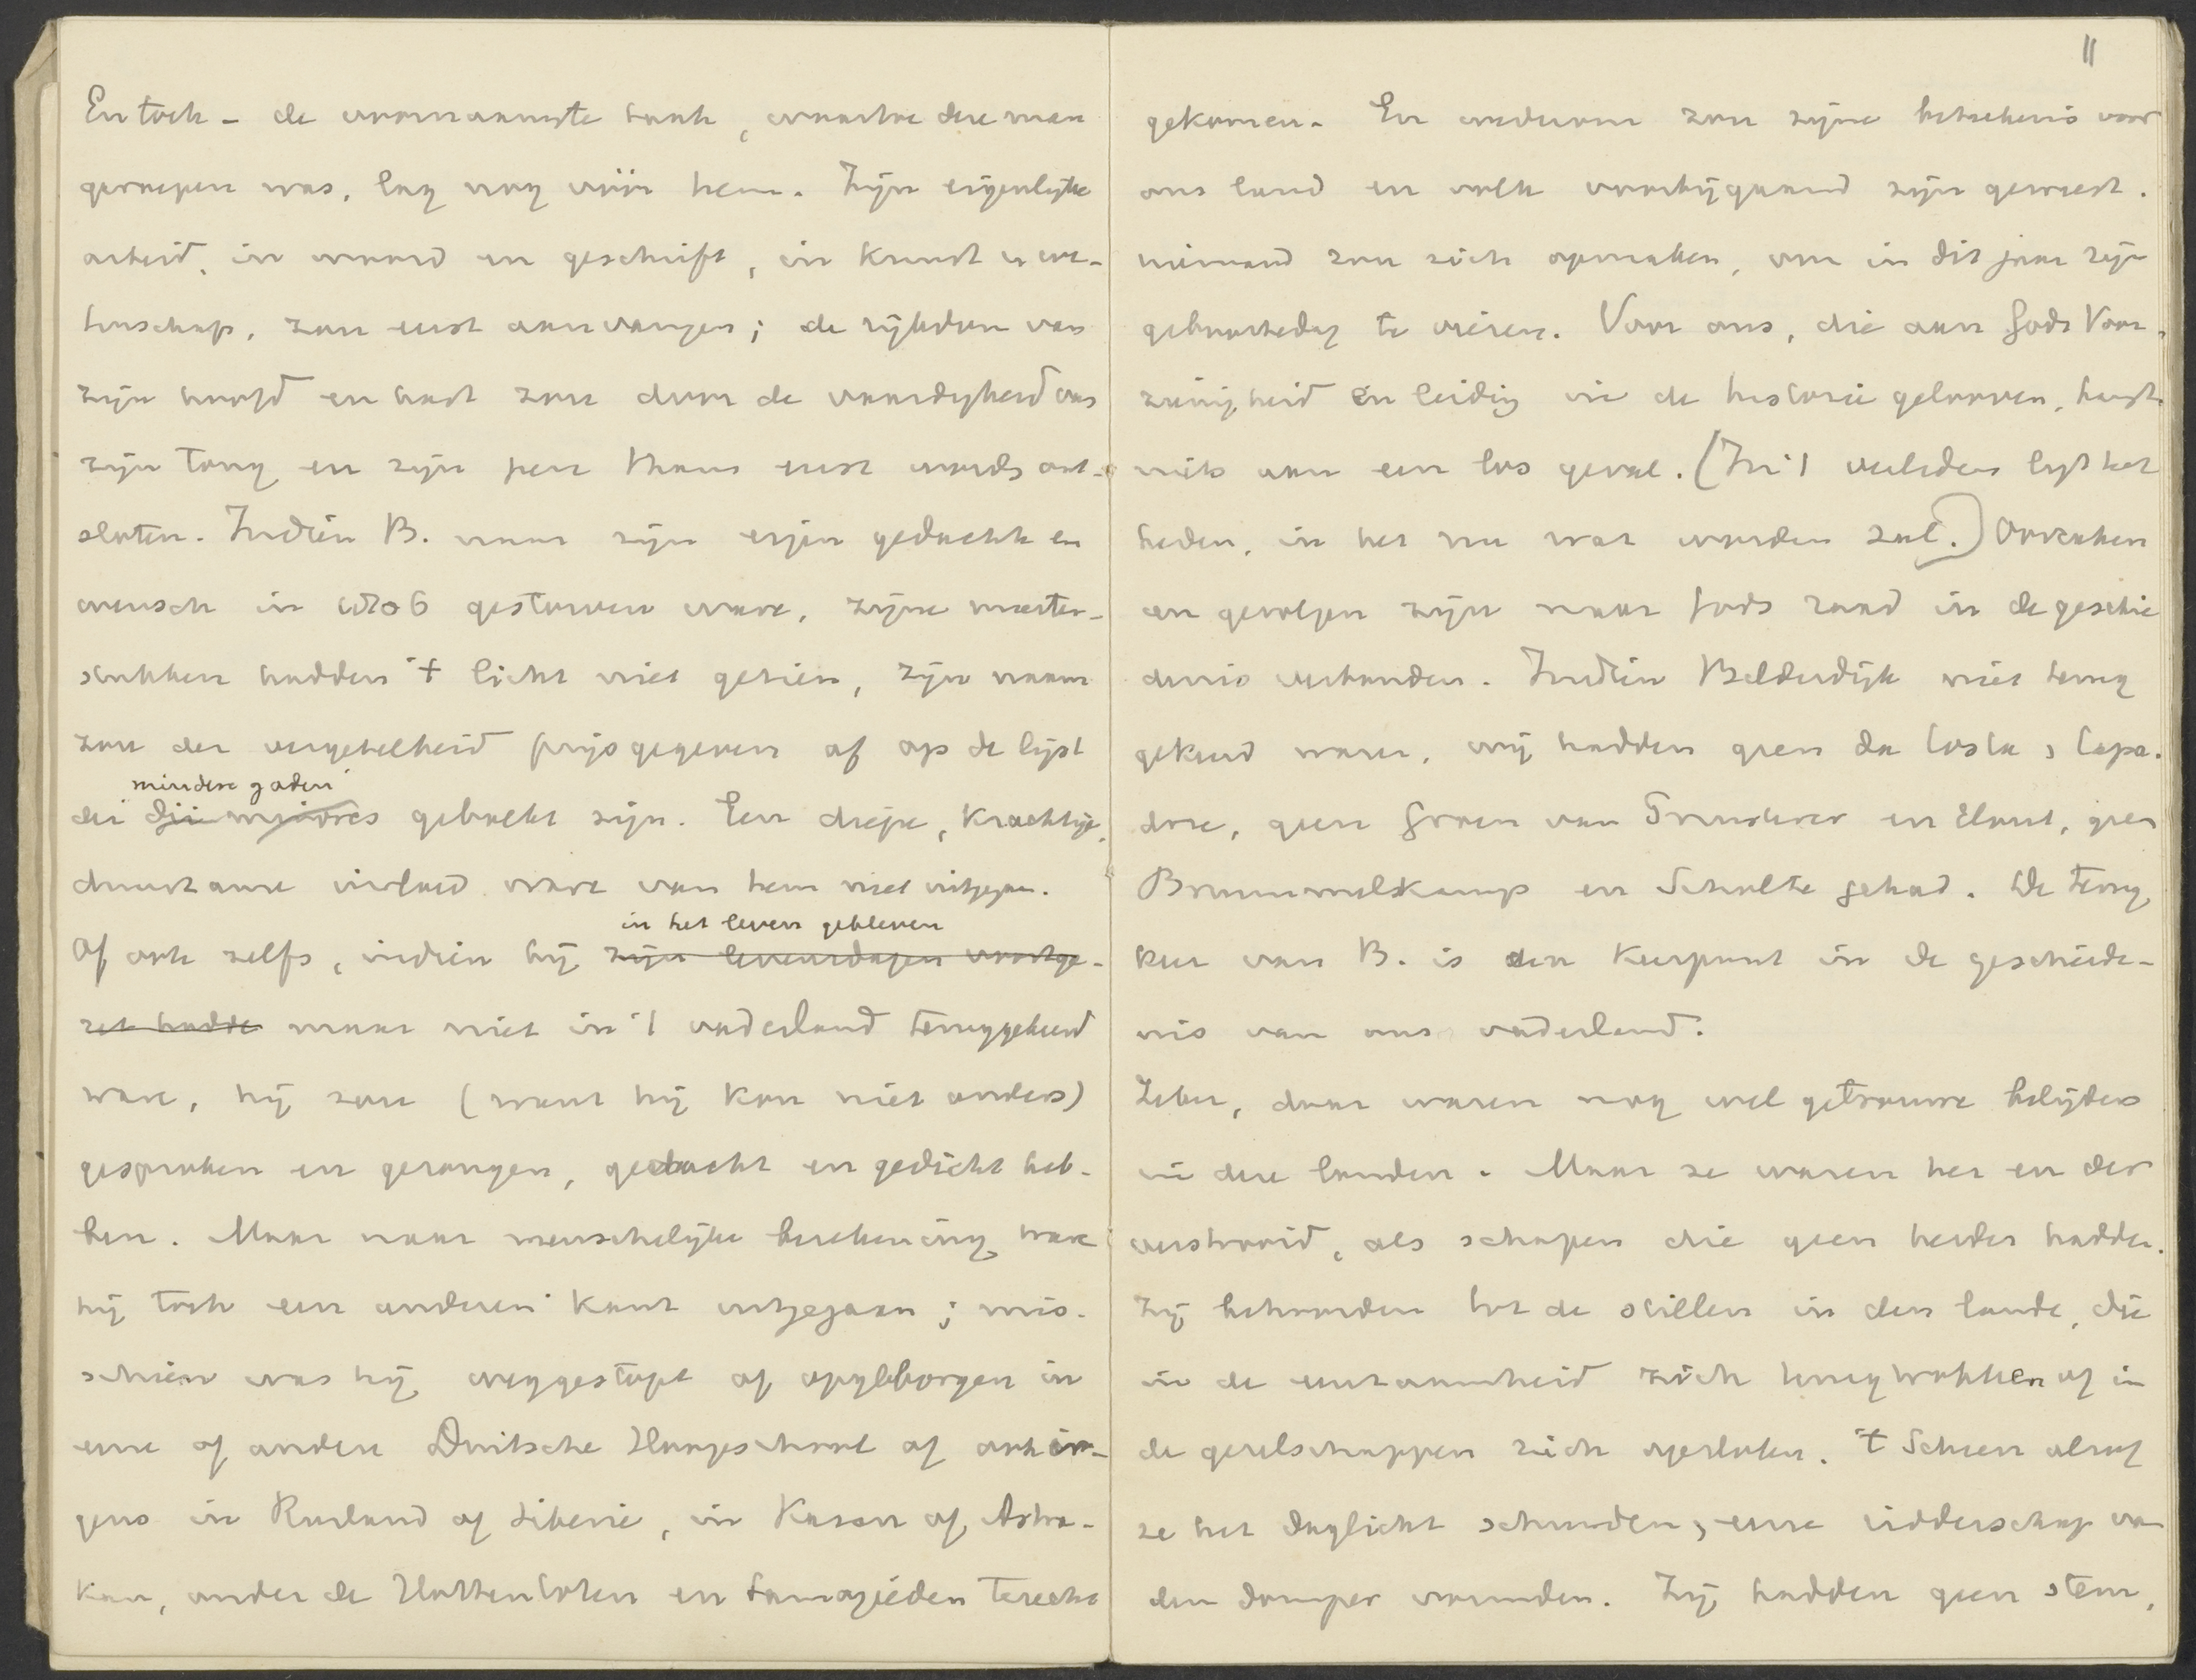 En toch – de voornaamste taak, waartoe deze man
geroepen was, lag nog vóór hem. Zijn eigenlijke
arbeid, in woord en geschrift, in kunst en we-
tenschap, zou eerst aanvangen; de rijkdom van
zijn hoofd en hart zou door de vaardigheid van
zijn tong en zijn pen thans eerst worden ont-
sloten. Indien B. naar zijn eigen gedachte en
wensch in 1806 gestorven ware, zijne meester-
stukken hadden 't licht niet gezien, zijn naam
zou der vergetelheid prijsgegeven of op de lijst
mindere goden
der dii minores gebracht zijn. Een diepe, krachtige,
duurzame invloed ware van hem niet uitgegaan.
in het leven gebleven
Of ook zelfs, indien hij zijn levensdagen voortge-
zet hadde maar niet in 't vaderland teruggekeerd
ware, hij zou (want hij kon niet anders)
gesproken en gezongen, gedacht en gedicht heb-
ben. Maar naar menschelijke berekening ware
hij toch een anderen kant uitgegaan; mis-
schien was hij weggestopt of opgeborgen in
eene of andere Duitsche Hoogeschool of ook er-
gens in Rusland of Siberie, in Kasan of Astra-
kan, onder de Hottentotten en Samojeden terecht
11
gekomen. En wederom zou zijne beteekenis voor
ons land en volk voorbijgaand zijn geweest.
niemand zou zich opmaken, om in dit jaar zijn
geboortedag te vieren. Voor ons, die aan Gods Voor-
zienigheid en leiding in de historie gelooven, hangt
niets aan een los geval. (In 't verleden ligt het
heden, in het nu wat worden zal.) Oorzaken
en gevolgen zijn naar Gods raad in de geschie
denis verbonden. Indien Bilderdijk niet terug
gekeerd ware, wij hadden geen da Costa, Capa-
dose, geen Groen van Prinsterer en Elout, geen
Brummelkamp en Scholte gehad. De terug
keer van B. is een keerpunt in de geschiede-
nis van ons vaderland.
Zeker, daar waren nog wel getrouwe belijders
in deze landen. Maar ze waren her en der
verstrooid, als schapen die geen herder hadden.
Zij behoorden tot de stillen in den lande, die
in de eenzaamheid zich terugtrokken of in
de gezelschappen zich opsloten. 't Scheen alsof
ze het daglicht schuwden, eene ridderschap van
den domper vormden. Zij hadden geen stem,